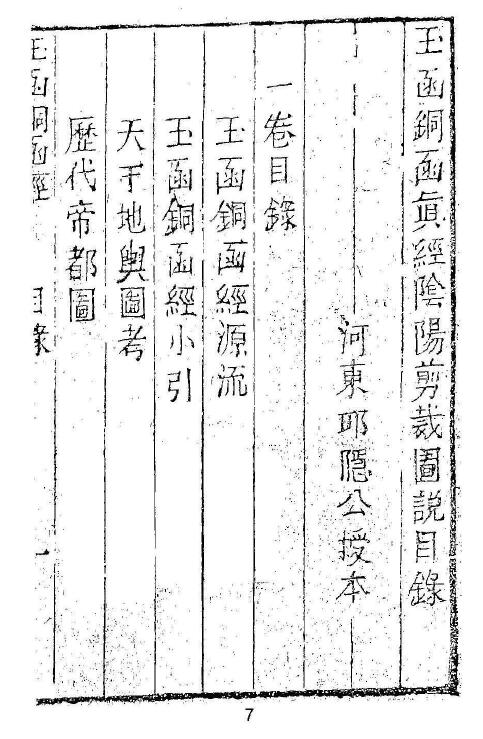 玉函銅函眞經陰陽剪裁圖說目錄
河東耶隱公授本
一卷目錄
玉函銅函經源流
玉函銅函經小引
天下地輿圖考
歷代帝都圖
玉函銅函經 目錄 一
7